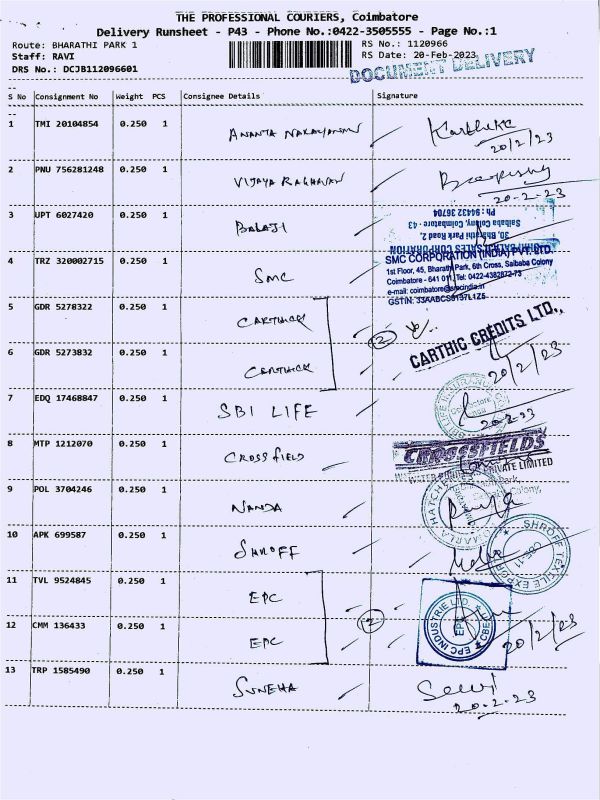 THE PROFESSIONAL COURIERS, Coimbatore
Delivery Runsheet - P43 - Phone No.:0422-3505555 - Page No.:1
Route: BHARATHI PARK 1 RS No.: 1120966
Staff: RAVI RS Date: 20-Feb-2023
DRS No.: DCJB112096601
DOCUMENT DELIVERY
S No Consignment No Weight PCS Consignee Details Signature
1 TMI 20104854 0.250 1 Karthika
20/2/23
2 PNU 756281248 0.250 1 VIJAYA RAGHAVAN
20-2-23
3 UPT 6027420 0.250 1 BALAJI
Ph : 94432 36704
Saibaba Colony, Coimbatore - 43.
30, Bharathi Park Road 2,
4 TRZ 320002715 0.250 1 SMC
SMC CORPORATION (INDIA) PVT. LTD.
1st Floor, 45, Bharathi Park, 6th Cross, Saibaba Colony
Coimbatore - 641 011, Tel: 0422-4382872-73
e-mail: coimbatore@smcindia.in
5 GDR 5278322 0.250 1 CARTHICK
2
CARTHIC CREDITS LTD.,
6 GDR 5273832 0.250 1 CARTHICK
20/2/23
7 EDQ 17468847 0.250 1 SBI LIFE
20-2-23
8 MTP 1212070 0.250 1 CROSSFIELD
CROSSFIELDS
WATER PRIVATE LIMITED
9 POL 3704246 0.250 1 NANDA
10 APK 699587 0.250 1 SHROFF
SHROFF TEXTILE EXPORTS
CBE-11
11 TVL 9524845 0.250 1 EPC
2
EPC INDUSTRIE LTD
12 CMM 136433 0.250 1 EPC
20/2/23
13 TRP 1585490 0.250 1 SUNEHA
20-2-23